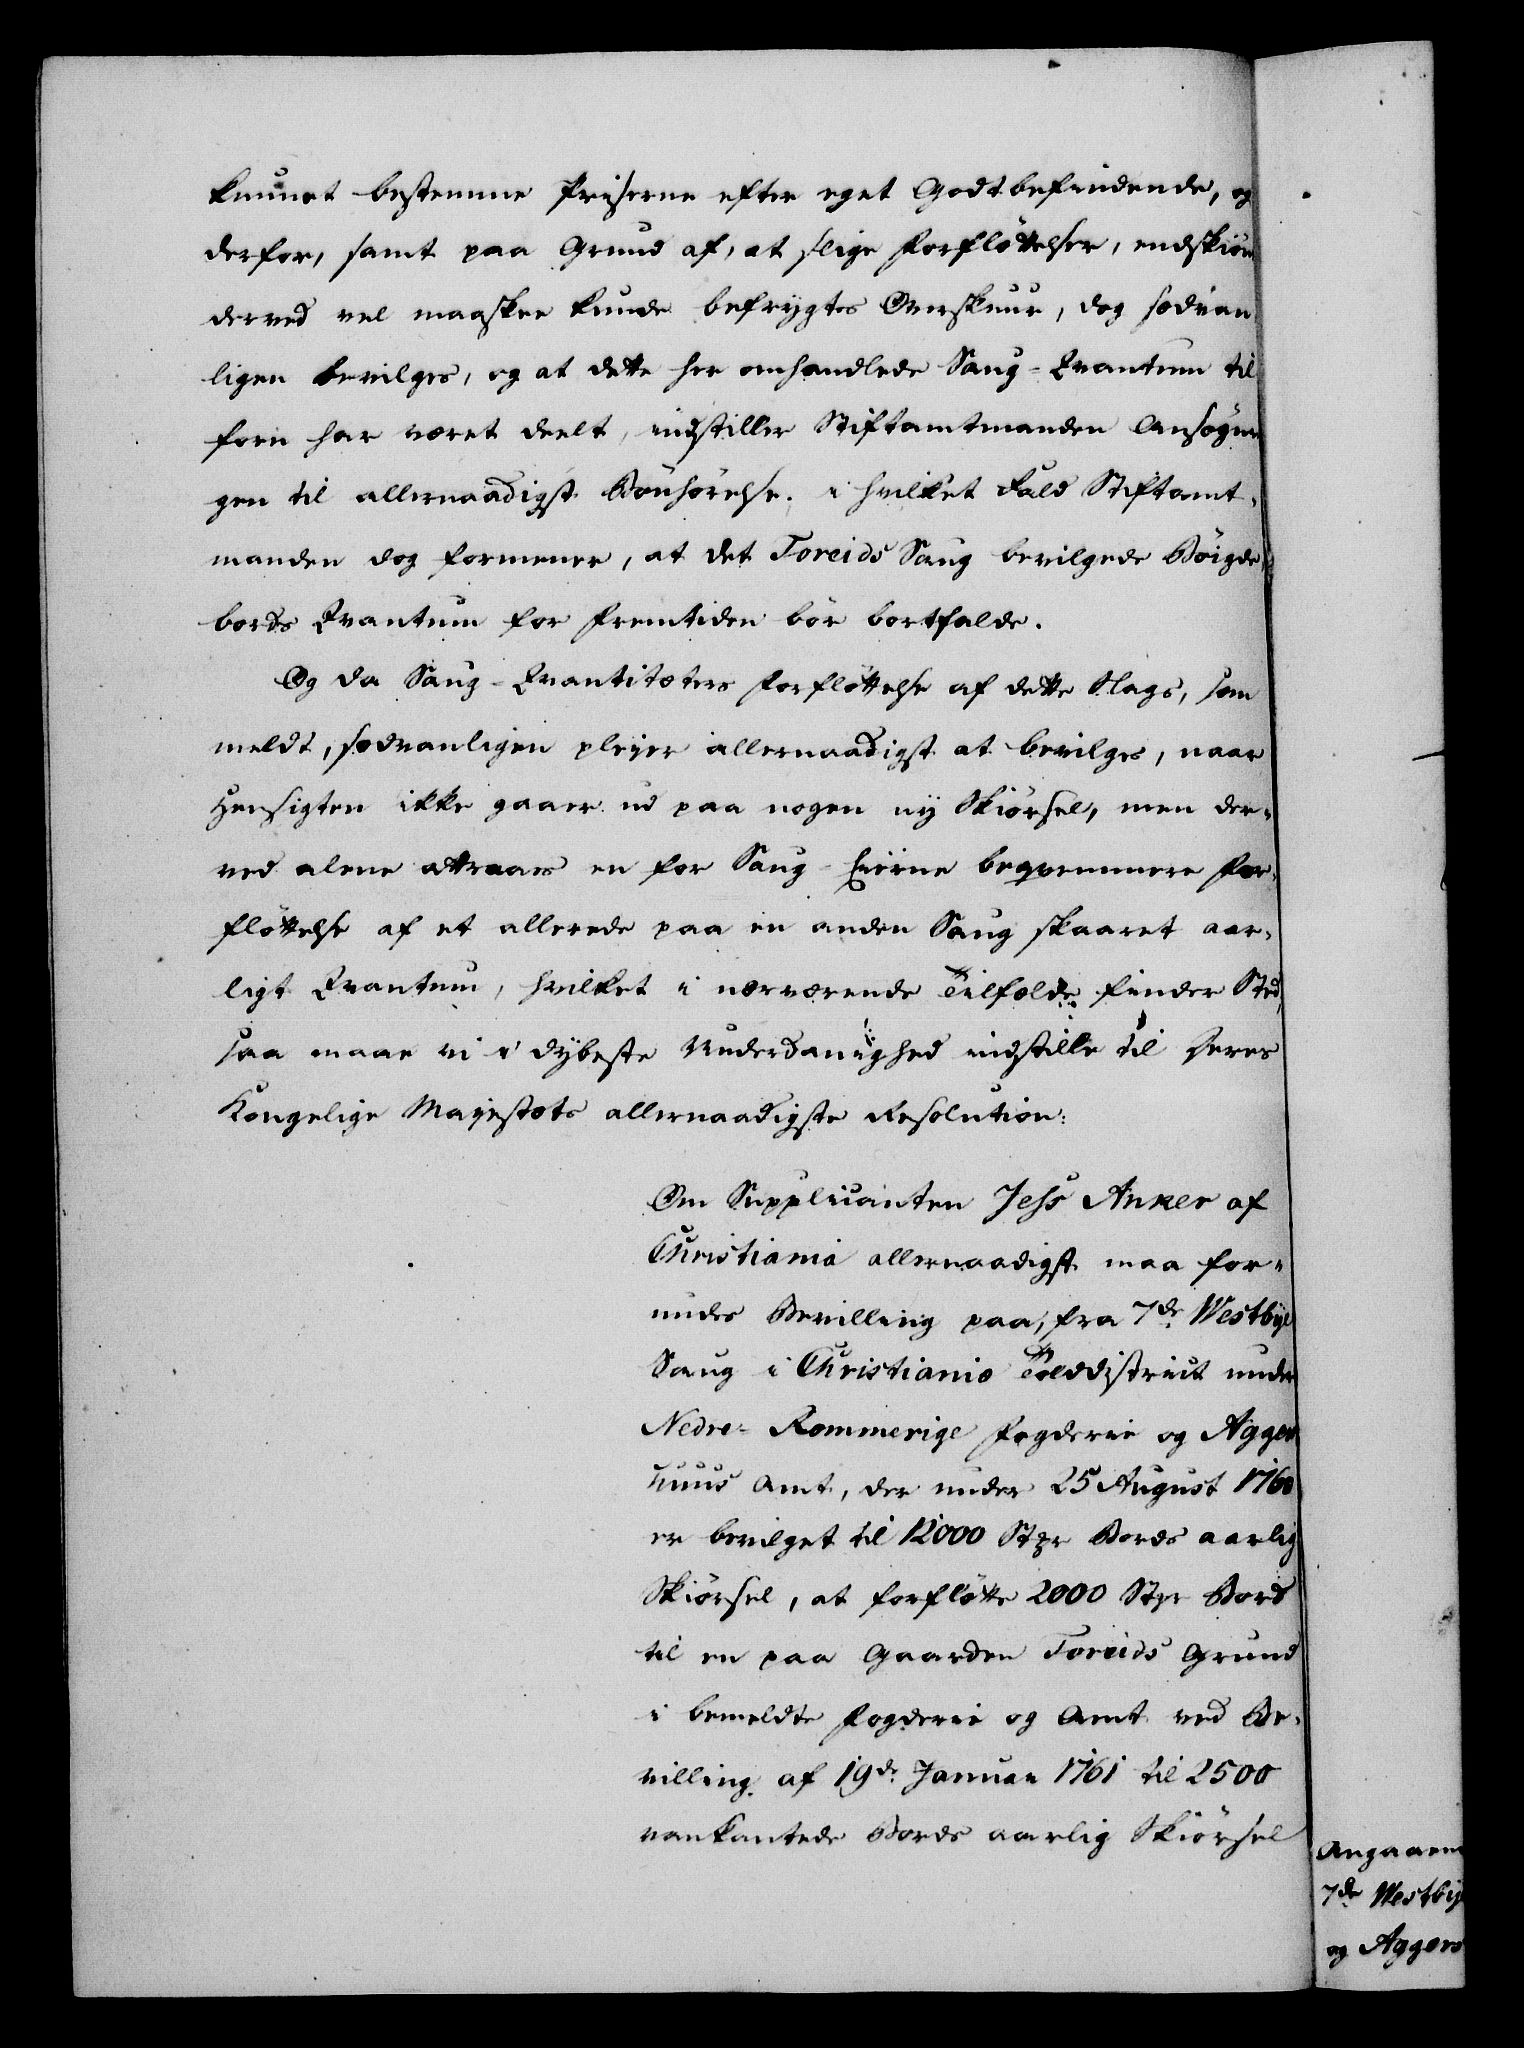 kunnet bestemme Priserne efter eget Godtbefindende, og
derfor, samt paa Grund af, at slige Forflöttelser, endskiön
derved vel maaskee kunde befrygtes Overskuur, dog sædvan
ligen bevilges, og at dette her omhandlede Saug-Qvantum til
forn har været deelt, indstiller Stiftamtmanden Ansögnin
gen til allernaadigst Bönhörelse. i hvilket Fald Stiftamt-
manden dog formener, at det Toreids Saug bevilgede Böigde
bords Qvantum for Fremtiden bör bortfalde.
Og da Saug-Qvantitæters Forflöttelse af dette Slags, som
meldt, sædvanligen pleier allernaadigst at bevilges, naar
Hensigten ikke gaaer ud paa nogen ny Skiörsel, men der-
ved alene attraaes en for Saug-Eierne beqvemmere For-
flöttelse af et allerede paa en anden Saug skaaret aar-
ligt Qvantum, hvilket i nærværende Tilfælde finder Sted,
saa maae vi i dybeste Underdanighed indstille til Deres
Kongelige Majestæts allernaadigste Resolution:
Om Supplicanten Jess Anker af
Christiania allernaadigst maa for-
undes Bevilling paa, fra 7de Westbye
Saug i Christiania Tolddistrict under
Nedre-Rommerige Fogderie og Agger
huus Amt, der under 25 August 1760
er bevilget til 12000 Stkr Bords aarlig
Skiörsel, at forflötte 2000 Stkr Bord
til en paa Gaarden Toreids Grund
i bemeldte Fogderie og Amt ved Be-
villing af 19de Januar 1761 til 2500
vankantede Bords aarlig Skiörsel
Angaaen
7de Westby
og Aggers